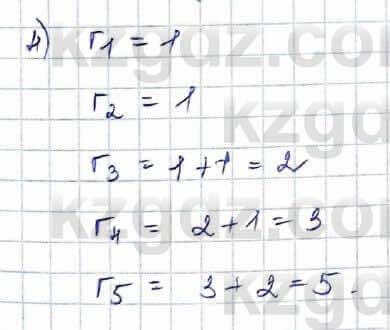 4) r₁ = 1
r₂ = 1
r₃ = 1 + 1 = 2
r₄ = 2 + 1 = 3
r₅ = 3 + 2 = 5.
kzgdz.com